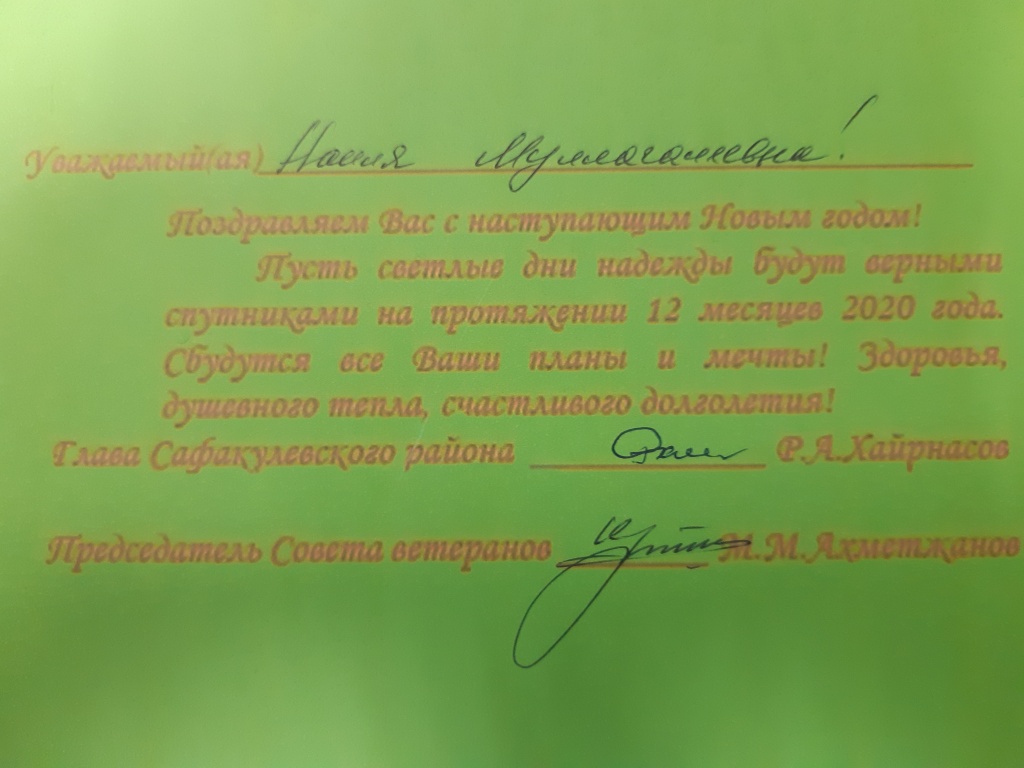 Уважаемый(ая) Наиля Муллагалеевна!
Поздравляем Вас с наступающим Новым годом!
Пусть светлые дни надежды будут верными
спутниками на протяжении 12 месяцев 2020 года.
Сбудутся все Ваши планы и мечты! Здоровья,
душевного тепла, счастливого долголетия!
Глава Сафакулевского района Р.А.Хайрнасов
Председатель Совета ветеранов М.Ахметжанов